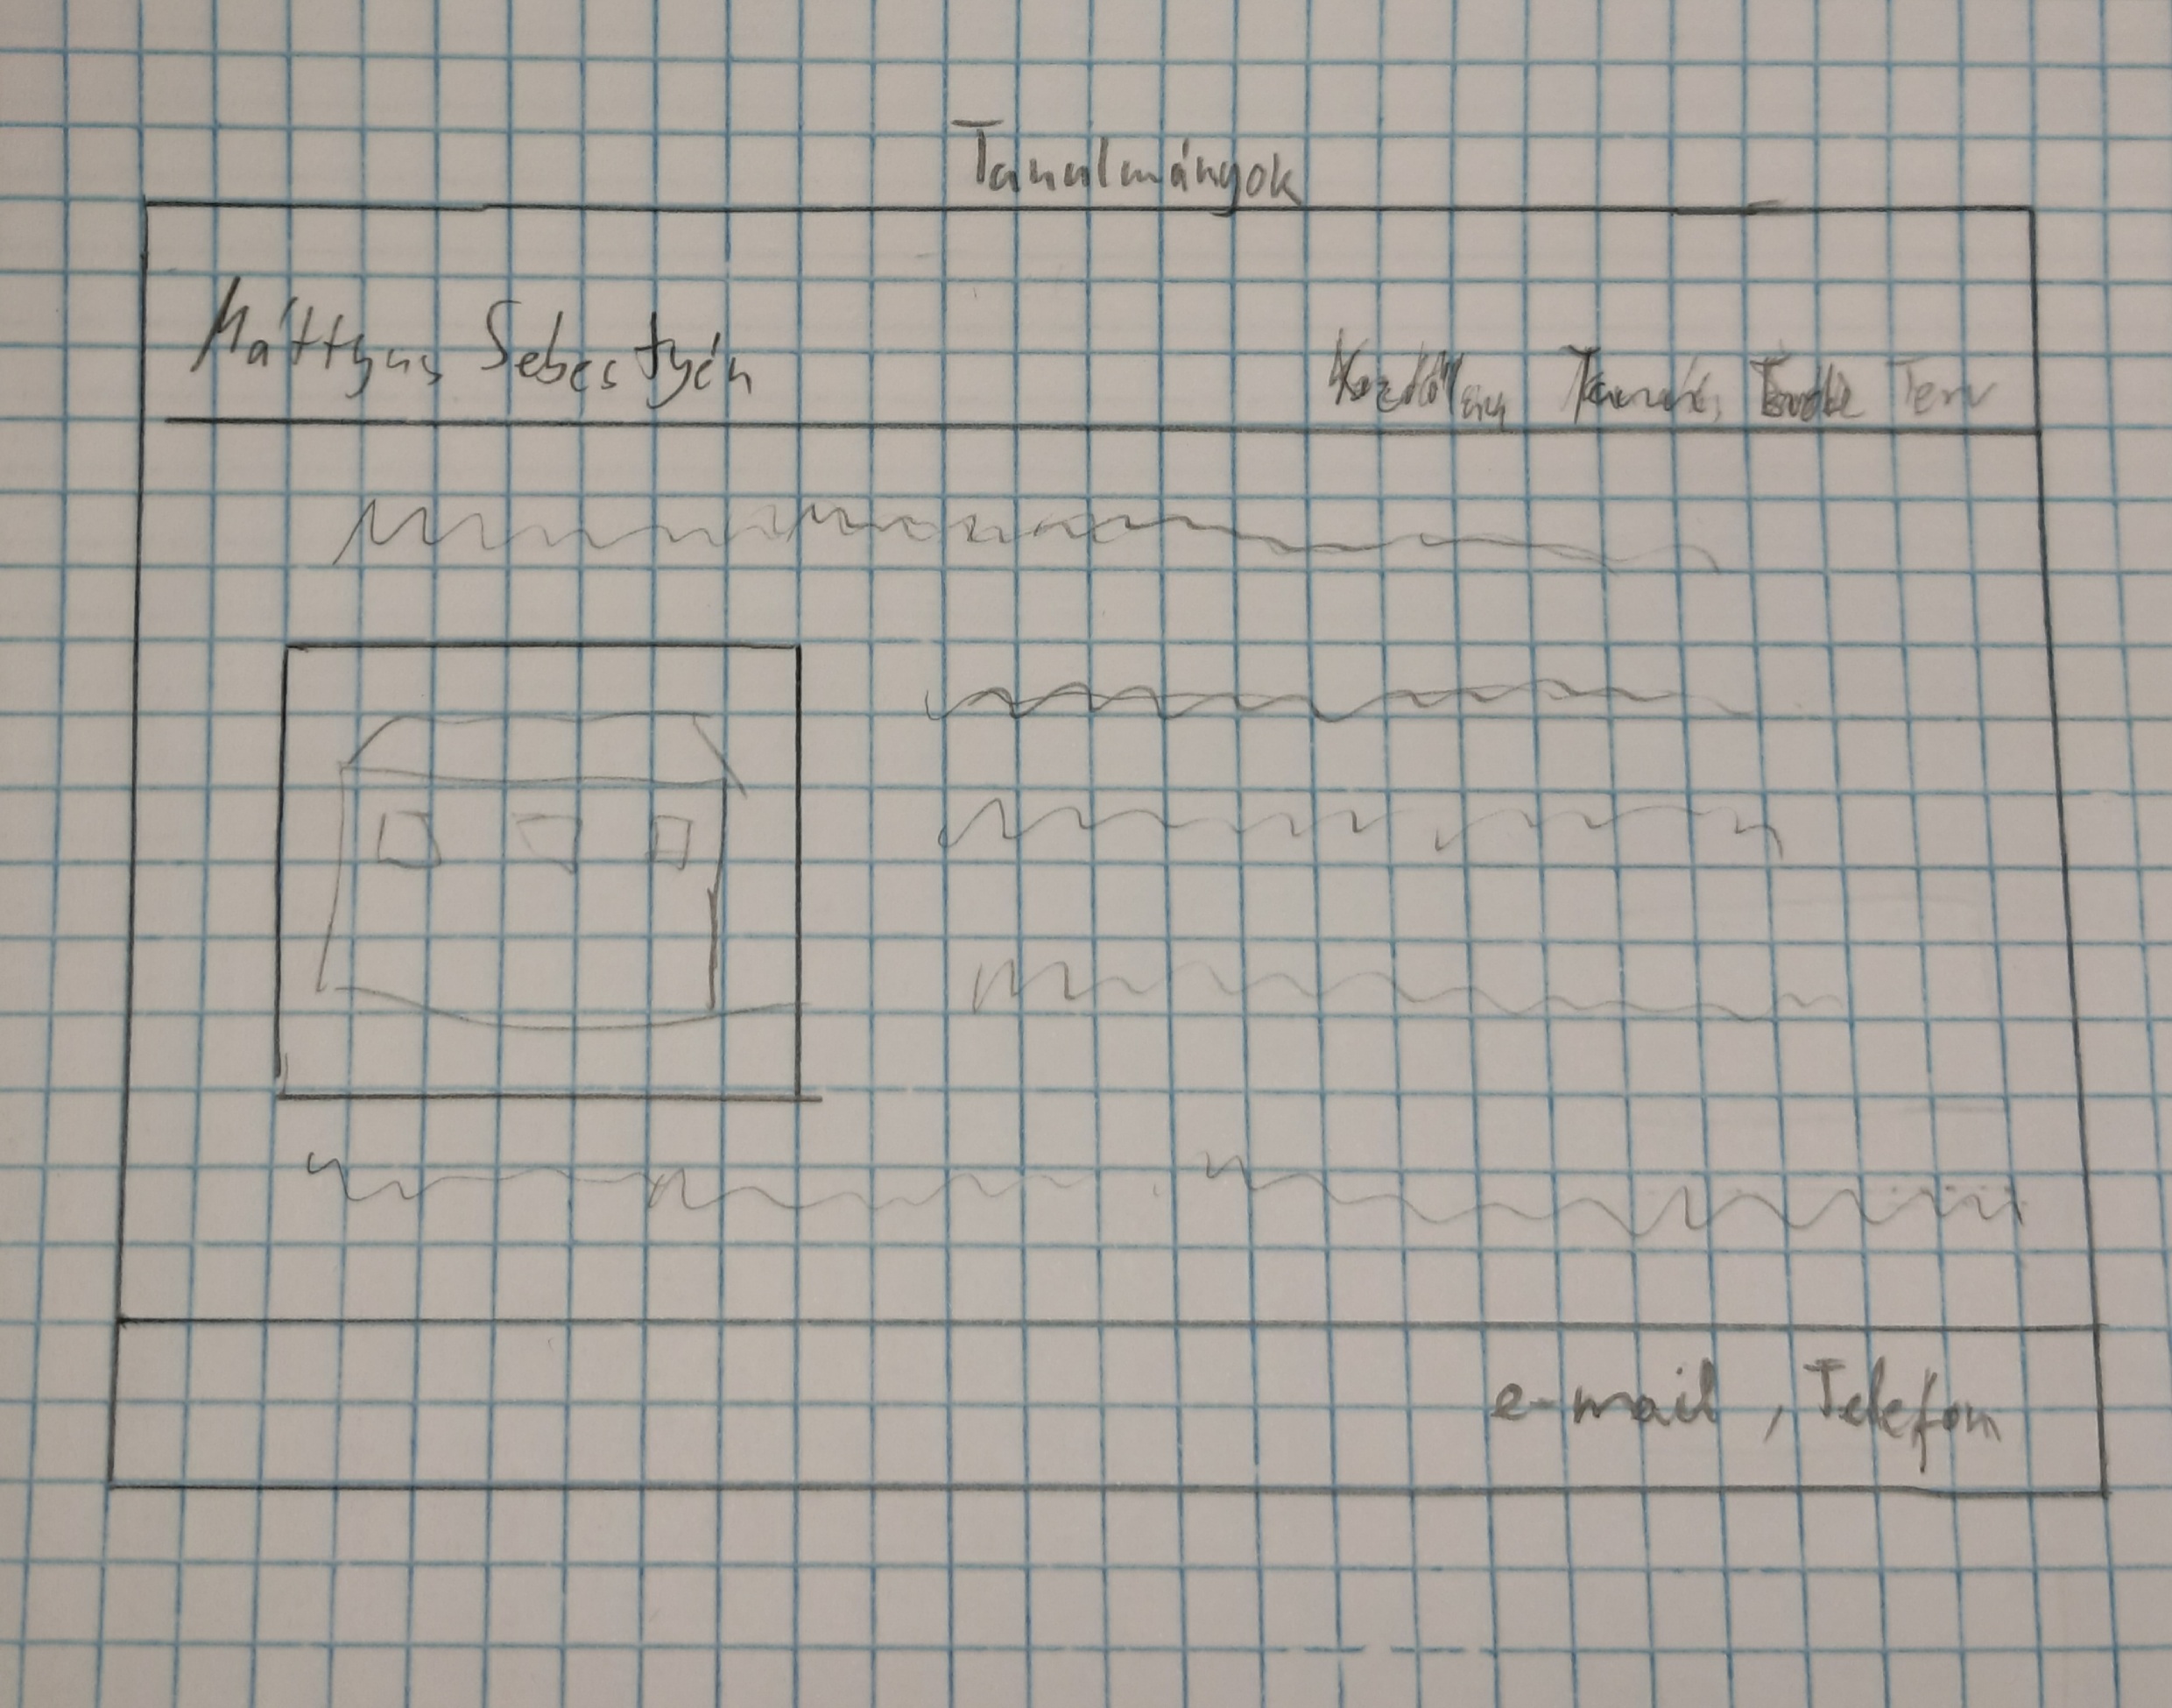 Tanulmányok
Máttyus Sebestyén
Kezdőlap Tanulm. Érdekl Terv
e-mail, Telefon